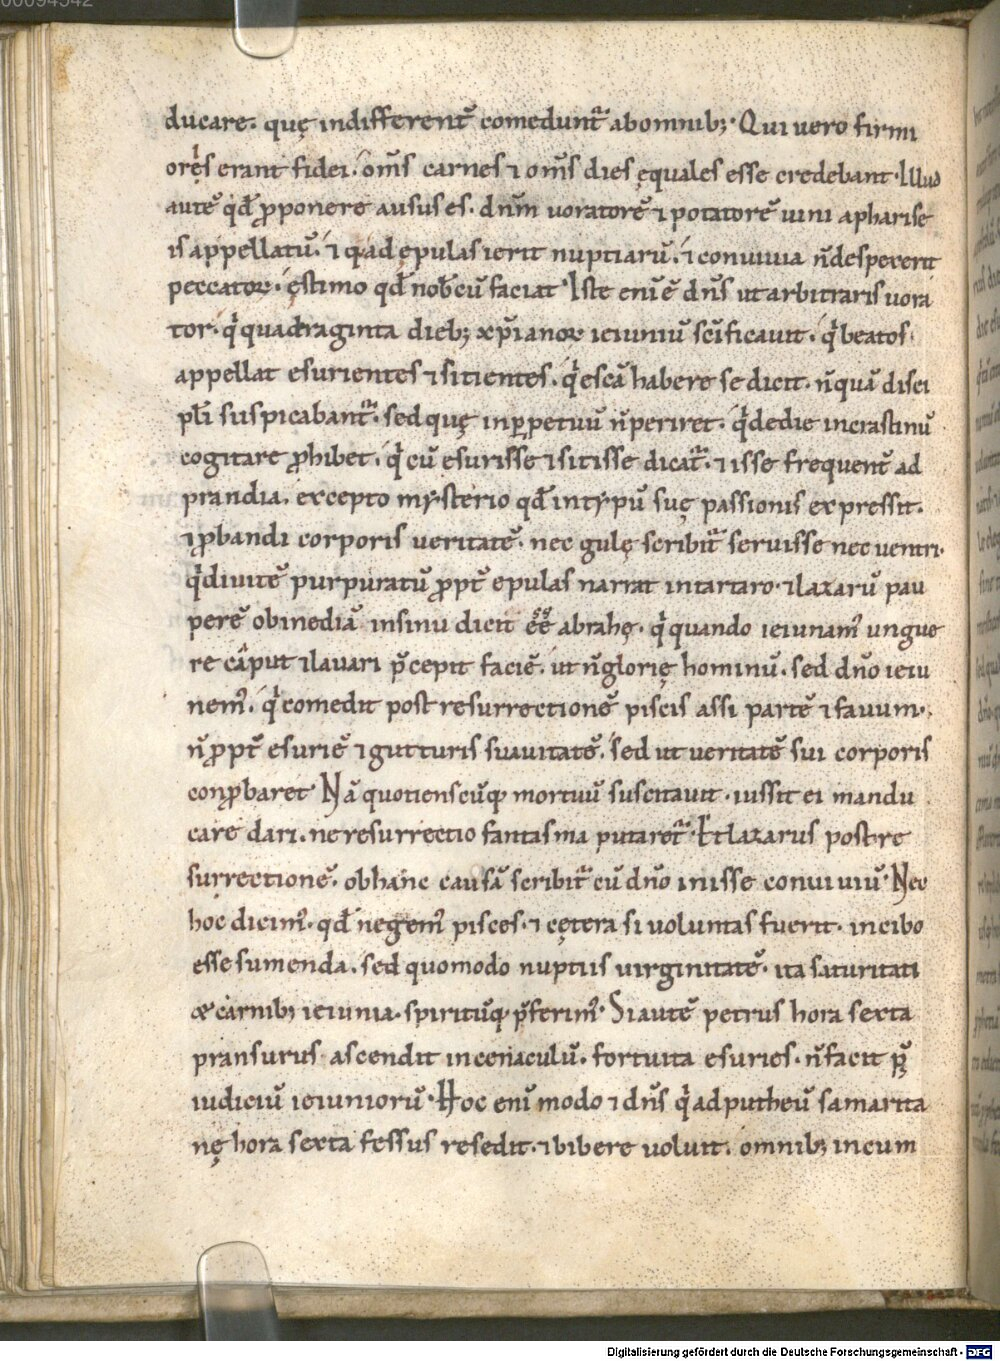 ducare. quę indifferent̄ comedunt᷑ ab omnib;. Qui uero firmi
orẹs erant fidei. om̄s carnes ⁊ om̄s dies ęquales esse credebant. Illud
autē qd̄ ꝓponere ausus es. dnm̄ uoratorē ⁊ potatorē uini a pharise
is appellatū. ⁊ qđ ad epulas ierit nuptiarū. ⁊ conuiuia n̄ despexerit
peccatoꝝ. ęstimo qd̄ nob̄cū faciat. Iste enī ē dn̄s ut arbitraris uora
tor. q̇ quadraginta dieb; xp̄ianoꝝ ieiuniū scīficauit. q̇ beatos
appellat esurientes ⁊ sitientes. q̇ escā habere se dicit. n̄ quā disci
pl̄i suspicabant᷑. sed quę in ꝑpetuū n̄ periret. q̇ de die in crastinū
cogitare ꝓhibet. q̇ cū esurisse ⁊ sitisse dicat᷑. ⁊ isse frequent̄ ad
prandia. excepto mysterio qd̄ in typū suę passionis expressit.
⁊ ꝓbandi corporis ueritatē. nec gulę scribit᷑ seruisse nec uentri.
q̇ diuitē purpuratū ꝓpt̄ epulas narrat in tartaro. ⁊ lazarū pau
perē ob inediā in sinu dicit ēē abrahę. q̇ quando ieiunam᷒ ungue
re cāput ⁊ lauari p̄cepit faciē. ut n̄ glorię hominū. sed dn̄o ieiu
nem᷒. q̇ comedit post resurrectionē piscis assi partē ⁊ fauum.
n̄ ꝓpt̄ esuriē ⁊ gutturis suauitatē. sed ut ueritatē sui corporis
conꝓbaret. Nā quotienscūq; mortuū suscitauit. iussit ei mandu
care dari. ne resurrectio fantasma putaret᷑. Et lazarus post re
surrectionē. ob hanc causā scribit᷑ cū dn̄o inisse conuiuiū. Nec
hoc dicim᷒. qd̄ negem᷒ pisces. ⁊ cętera si uoluntas fuerit. in cibo
esse sumenda. sed quomodo nuptiis uirginitatē. ita saturitati
æ carnib; ieiunia. spiritūq; p̄ferim᷒. Si autē petrus hora sexta
pransurus ascendit in cenaculū. fortuita esuries. n̄ facit
iudiciū ieiuniorū. Hoc enī modo ⁊ dn̄s q̇ ad putheū samarita
nę hora sexta fessus resedit. ⁊ bibere uoluit. omnib; incum
Digitalisierung gefördert durch die Deutsche Forschungsgemeinschaft - DFG